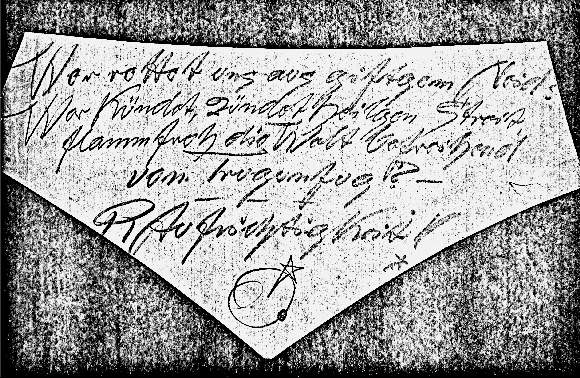 Wer rottet uns aus giftgem Neid:
Wer kündet, zündet heilgen Streit
flammfroh die Welt befreihend
vom Trugunfug? –
R Aufrichtigkeit!